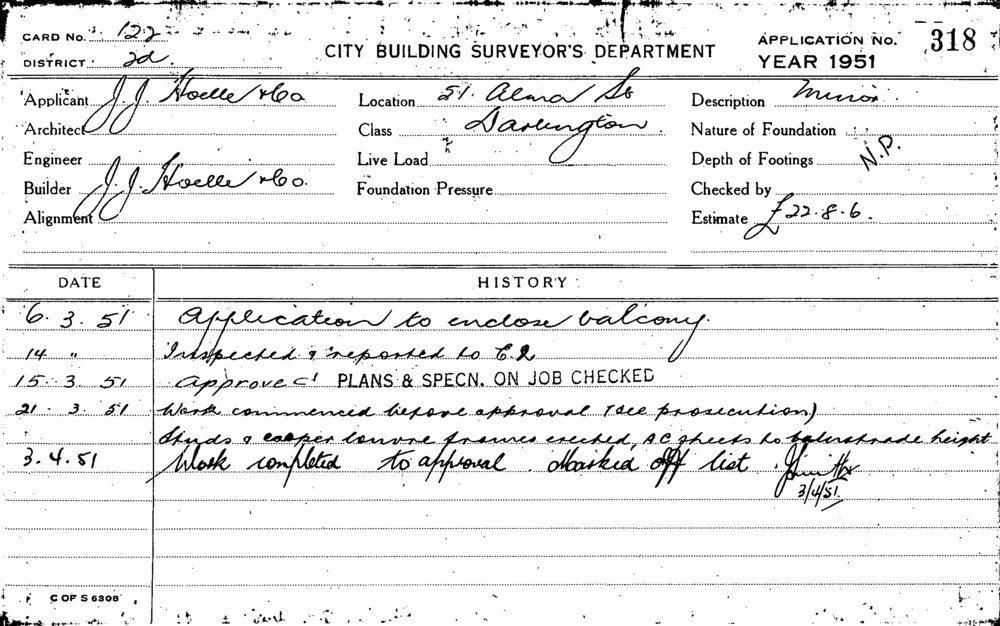 CARD No. 122
DISTRICT 2d.
CITY BUILDING SURVEYOR'S DEPARTMENT
APPLICATION No. 318
YEAR 1951
Applicant J. J. Hoelle & Co
Location 51. Alma St
Description Minor
Architect
Class Darlington.
Nature of Foundation
Engineer
Live Load
Depth of Footings N.P.
Builder J. J. Hoelle & Co.
Foundation Pressure
Checked by
Alignment
Estimate £22.8.6.
DATE HISTORY
6. 3. 51 Application to enclose balcony.
14 " Inspected & reported to
15. 3. 51 Approved PLANS & SPECN. ON JOB CHECKED
21. 3. 51 Work commenced before approval (see prosecution)
Studs & louvre frames erected, A.C. sheets to balustrade height
3.4.51 Work completed to approval. Marked off list.
3/4/51.
C OF S 6308